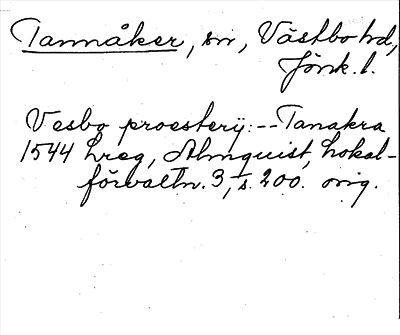 Tannåker, sn, Västbo hd,
Jönk. l.
Vesbo proesterij: -- Tanakra
1544 Lreg, Almquist, Lokal-
förvaltn. 3, s. 200. orig.